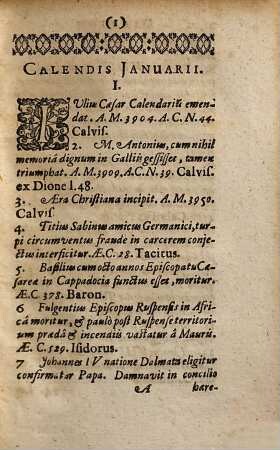 (1)
CALENDIS JANUARII.
I.
IUlius Cæsar Calendariũ emen-
dat. A. M. 3904. A. C. N. 44.
Calvis.
2. M. Antonius, cum nihil
memoriâ dignum in Galliis gessisset, tamen
triumphat. A.M. 3909. A.C.N. 39. Calvis.
ex Dione l. 48.
3. Æra Christiana incipit. A. M. 3950.
Calvis.
4. Titius Sabinus amicus Germanici, tur-
pi circumventus fraude in carcerem conje-
ctus interficitur. Æ.C. 28. Tacitus.
5. Basilius cum octo annos Episcopatu Cæ-
sareæ in Cappadocia functus esset, moritur.
Æ.C 378. Baron.
6 Fulgentius Episcopus Ruspensis in Afri-
câ moritur, & paulò post Ruspense territori-
um prædâ & incendiis vastatur â Mauris.
Æ. C. 529. Isidorus.
7 Johannes IV natione Dalmata eligitur
confirmatur Papa. Damnavit in concilio
A hære-